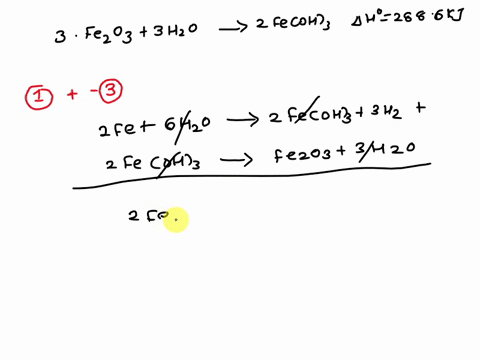 3. Fe2O3 + 3H2O → 2 Fe(OH)3 ΔH°=288.6KJ
① + -③
2Fe + 6H2O → 2 Fe(OH)3 + 3H2 +
2 Fe (OH)3 → Fe2O3 + 3H2O
2 Fe